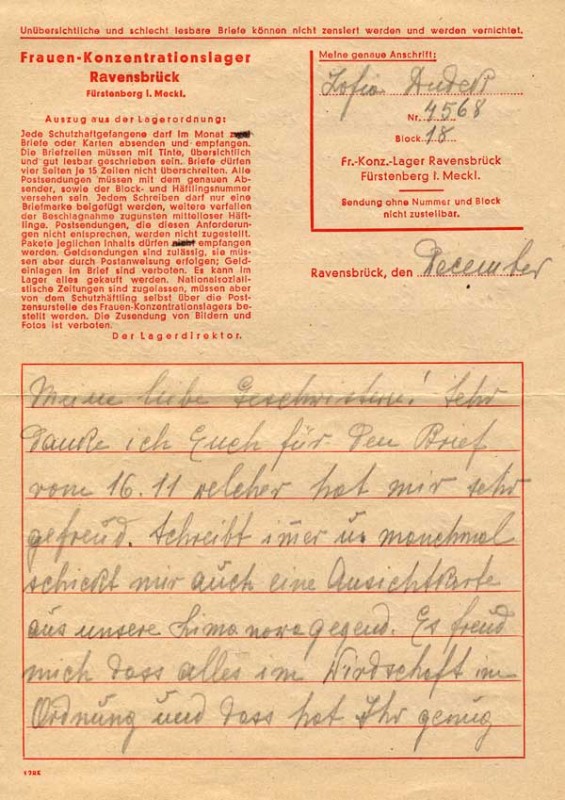 Unübersichtliche und schlecht lesbare Briefe können nicht zensiert werden und werden vernichtet.
Frauen-Konzentrationslager
Ravensbrück
Fürstenberg i. Meckl.
Auszug aus der Lagerordnung:
Jede Schutzhaftgefangene darf im Monat
Briefe oder Karten absenden und empfangen.
Die Briefzeilen müssen mit Tinte, übersichtlich
und gut lesbar geschrieben sein. Briefe dürfen
vier Seiten je 15 Zeilen nicht überschreiten. Alle
Postsendungen müssen mit dem genauen Ab-
sender, sowie der Block- und Häftlingsnummer
versehen sein. Jedem Schreiben darf nur eine
Briefmarke beigefügt werden, weitere verfallen
der Beschlagnahme zugunsten mittelloser Häft-
linge. Postsendungen, die diesen Anforderun-
gen nicht entsprechen, werden nicht zugestellt.
Pakete jeglichen Inhalts dürfen nicht empfangen
werden. Geldsendungen sind zulässig, sie müs-
sen aber durch Postanweisung erfolgen; Geld-
einlagen im Brief sind verboten. Es kann im
Lager alles gekauft werden. Nationalsoziali-
stische Zeitungen sind zugelassen, müssen aber
von dem Schutzhäftling selbst über die Post-
zensurstelle des Frauen-Konzentrationslagers be-
stellt werden. Die Zusendung von Bildern und
Fotos ist verboten.
Der Lagerdirektor.
Meine genaue Anschrift:
Zofia
Nr. 4568
Block 18
Fr.-Konz.-Lager Ravensbrück
Fürstenberg i. Meckl.
Sendung ohne Nummer und Block
nicht zustellbar.
Ravensbrück, den December
Meine liebe Geschwistern! Sehr
danke ich Euch für den Brief
vom 16.11 welcher hat mir sehr
gefreud. Schreibt imer u. manchmal
schickt mir auch eine Ansichtkarte
aus unsere Limanova gegend. Es freud
mich dass alles im Wirdschaft in
Ordnung und dass hat Ihr genug